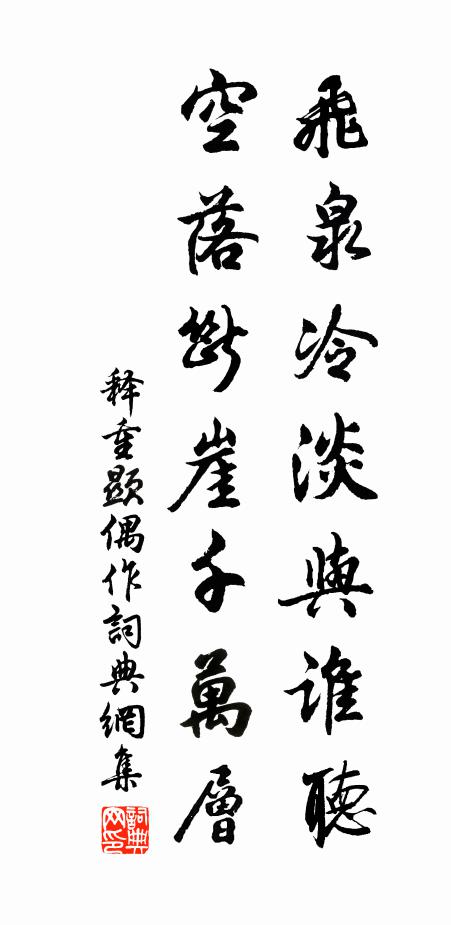 飛泉冷淡與誰聽
空落斷崖千萬層
释重顯偶作詞典網集
詞典网印